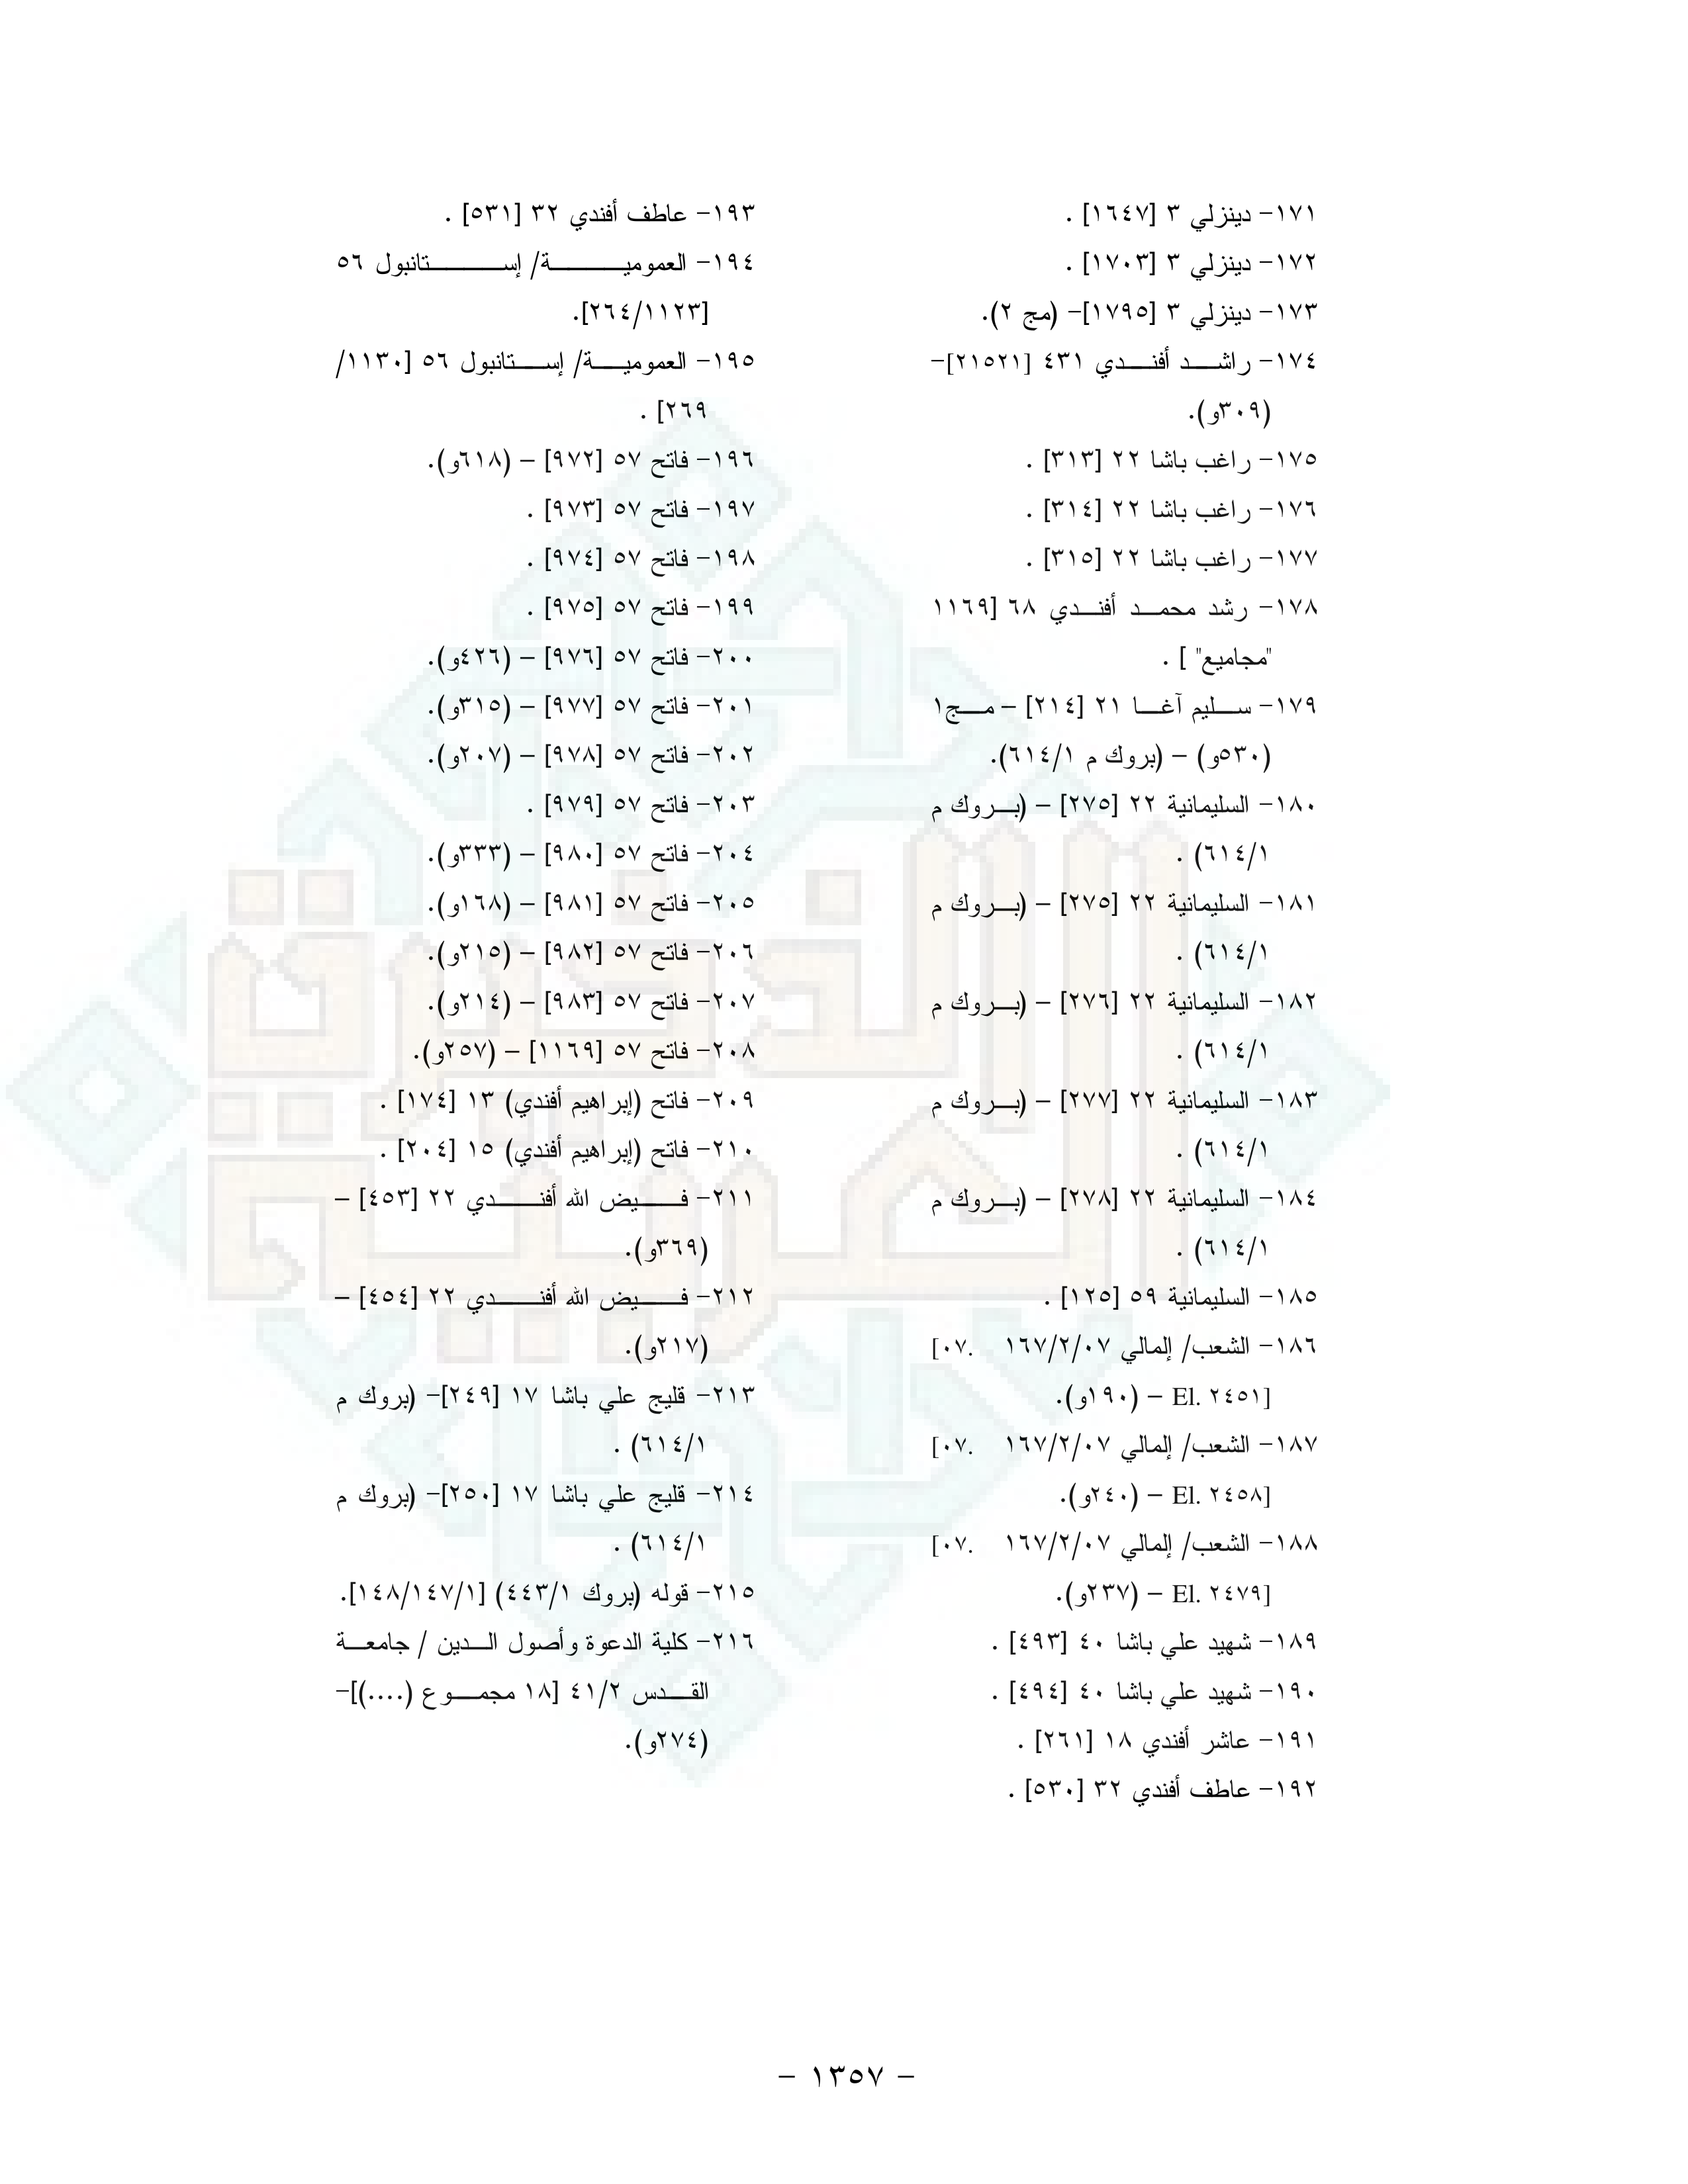 ١٧١- دينزلي ٣ [١٦٤٧] .
١٧٢- دينزلي ٣ [١٧٠٣] .
١٧٣- دينزلي ٣ [١٧٩٥]- (مج ٢).
١٧٤- راشد أفندي ٤٣١ [٢١٥٢١]-
(٣٠٩و).
١٧٥- راغب باشا ٢٢ [٣١٣] .
١٧٦- راغب باشا ٢٢ [٣١٤] .
١٧٧- راغب باشا ٢٢ [٣١٥] .
١٧٨- رشد محمد أفندي ٦٨ [١١٦٩
"مجاميع" ] .
١٧٩- سليم آغا ٢١ [٢١٤] – مج١
(٥٣٠و) – (بروك م ٦١٤/١).
١٨٠- السليمانية ٢٢ [٢٧٥] – (بروك م
٦١٤/١) .
١٨١- السليمانية ٢٢ [٢٧٥] – (بروك م
٦١٤/١) .
١٨٢- السليمانية ٢٢ [٢٧٦] – (بروك م
٦١٤/١) .
١٨٣- السليمانية ٢٢ [٢٧٧] – (بروك م
٦١٤/١) .
١٨٤- السليمانية ٢٢ [٢٧٨] – (بروك م
٦١٤/١) .
١٨٥- السليمانية ٥٩ [١٢٥] .
١٨٦- الشعب/ إلمالي ١٦٧/٢/٠٧ [٠٧.
El. ٢٤٥١] – (١٩٠و).
١٨٧- الشعب/ إلمالي ١٦٧/٢/٠٧ [٠٧.
El. ٢٤٥٨] – (٢٤٠و).
١٨٨- الشعب/ إلمالي ١٦٧/٢/٠٧ [٠٧.
El. ٢٤٧٩] – (٢٣٧و).
١٨٩- شهيد علي باشا ٤٠ [٤٩٣] .
١٩٠- شهيد علي باشا ٤٠ [٤٩٤] .
١٩١- عاشر أفندي ١٨ [٢٦١] .
١٩٢- عاطف أفندي ٣٢ [٥٣٠] .
١٩٣- عاطف أفندي ٣٢ [٥٣١] .
١٩٤- العمومية/ إستانبول ٥٦
[٢٦٤/١١٢٣].
١٩٥- العمومية/ إستانبول ٥٦ [١١٣٠/
٢٦٩] .
١٩٦- فاتح ٥٧ [٩٧٢] – (٦١٨و).
١٩٧- فاتح ٥٧ [٩٧٣] .
١٩٨- فاتح ٥٧ [٩٧٤] .
١٩٩- فاتح ٥٧ [٩٧٥] .
٢٠٠- فاتح ٥٧ [٩٧٦] – (٤٢٦و).
٢٠١- فاتح ٥٧ [٩٧٧] – (٣١٥و).
٢٠٢- فاتح ٥٧ [٩٧٨] – (٢٠٧و).
٢٠٣- فاتح ٥٧ [٩٧٩] .
٢٠٤- فاتح ٥٧ [٩٨٠] – (٣٣٣و).
٢٠٥- فاتح ٥٧ [٩٨١] – (١٦٨و).
٢٠٦- فاتح ٥٧ [٩٨٢] – (٢١٥و).
٢٠٧- فاتح ٥٧ [٩٨٣] – (٢١٤و).
٢٠٨- فاتح ٥٧ [١١٦٩] – (٢٥٧و).
٢٠٩- فاتح (إبراهيم أفندي) ١٣ [١٧٤] .
٢١٠- فاتح (إبراهيم أفندي) ١٥ [٢٠٤] .
٢١١- فيض الله أفندي ٢٢ [٤٥٣] –
(٣٦٩و).
٢١٢- فيض الله أفندي ٢٢ [٤٥٤] –
(٢١٧و).
٢١٣- قليج علي باشا ١٧ [٢٤٩]- (بروك م
٦١٤/١) .
٢١٤- قليج علي باشا ١٧ [٢٥٠]- (بروك م
٦١٤/١) .
٢١٥- قوله (بروك ٤٤٣/١) [١٤٨/١٤٧/١].
٢١٦- كلية الدعوة وأصول الدين / جامعة
القدس ٤١/٢ [١٨ مجموع (....)]-
(٢٧٤و).
الذخيرة
العربية
– ١٣٥٧ –